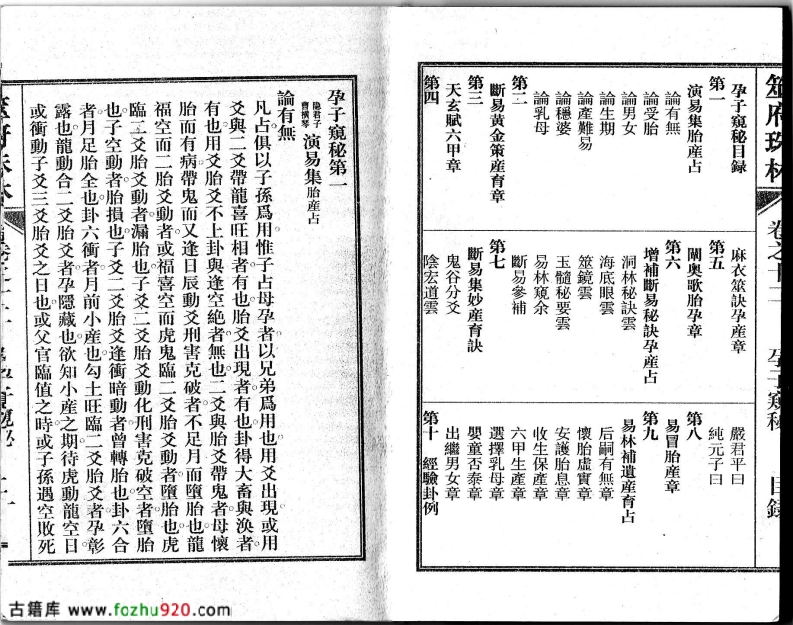 筮府珠林
卷之十二
孕子窺秘
目錄
孕子窺秘目錄
第一
演易集胎産占
論有無
論受胎
論男女
論生期
論產難易
論穩婆
論乳母
第二
斷易黃金策産育章
第三
天玄賦六甲章
第四
麻衣筮訣孕産章
第五
闡奥歌胎孕章
第六
增補斷易秘訣孕産占
洞林秘訣雲
海底眼雲
筮鏡雲
玉髓秘要雲
易林窺余
斷易參補
第七
斷易集妙産育訣
鬼谷分爻
陰宏道雲
嚴君平曰
純元子曰
第八
易冒胎産章
第九
易林補遺産育占
后嗣有無章
懷胎虛實章
安護胎息章
收生保産章
六甲生産章
選擇乳母章
嬰童否泰章
出繼男女章
第十 經驗卦例
孕子窺秘第一
隐君子
曹横琴
演易集胎産占
論有無
凡占俱以子孫爲用惟子占母孕者以兄弟爲用也用爻出現或用
爻與二爻帶龍喜旺相者有也胎爻出現者有也卦得大畜與渙者
有也用爻胎爻不上卦與逢空絶者無也二爻與胎爻帶鬼者母懷
胎而有病帶鬼而又逢日辰動爻刑害克破者不足月而墮胎也龍
福空而二胎爻動者或福喜空而虎鬼臨二爻胎爻動者墮胎也虎
臨二爻胎爻動者漏胎也子爻二爻胎爻動化刑害克破空者墮胎
也子空動者胎損也子爻二爻胎爻逢衝暗動者曾轉胎也卦六合
者月足胎全也卦六衝者月前小産也勾土旺臨二爻胎爻者孕彰
露也龍動合二爻胎爻者孕隱藏也欲知小産之期待虎動龍空日
或衝動子爻三爻胎爻之日也或父官臨值之時或子孫遇空敗死
古籍库 www.fozhu920.com